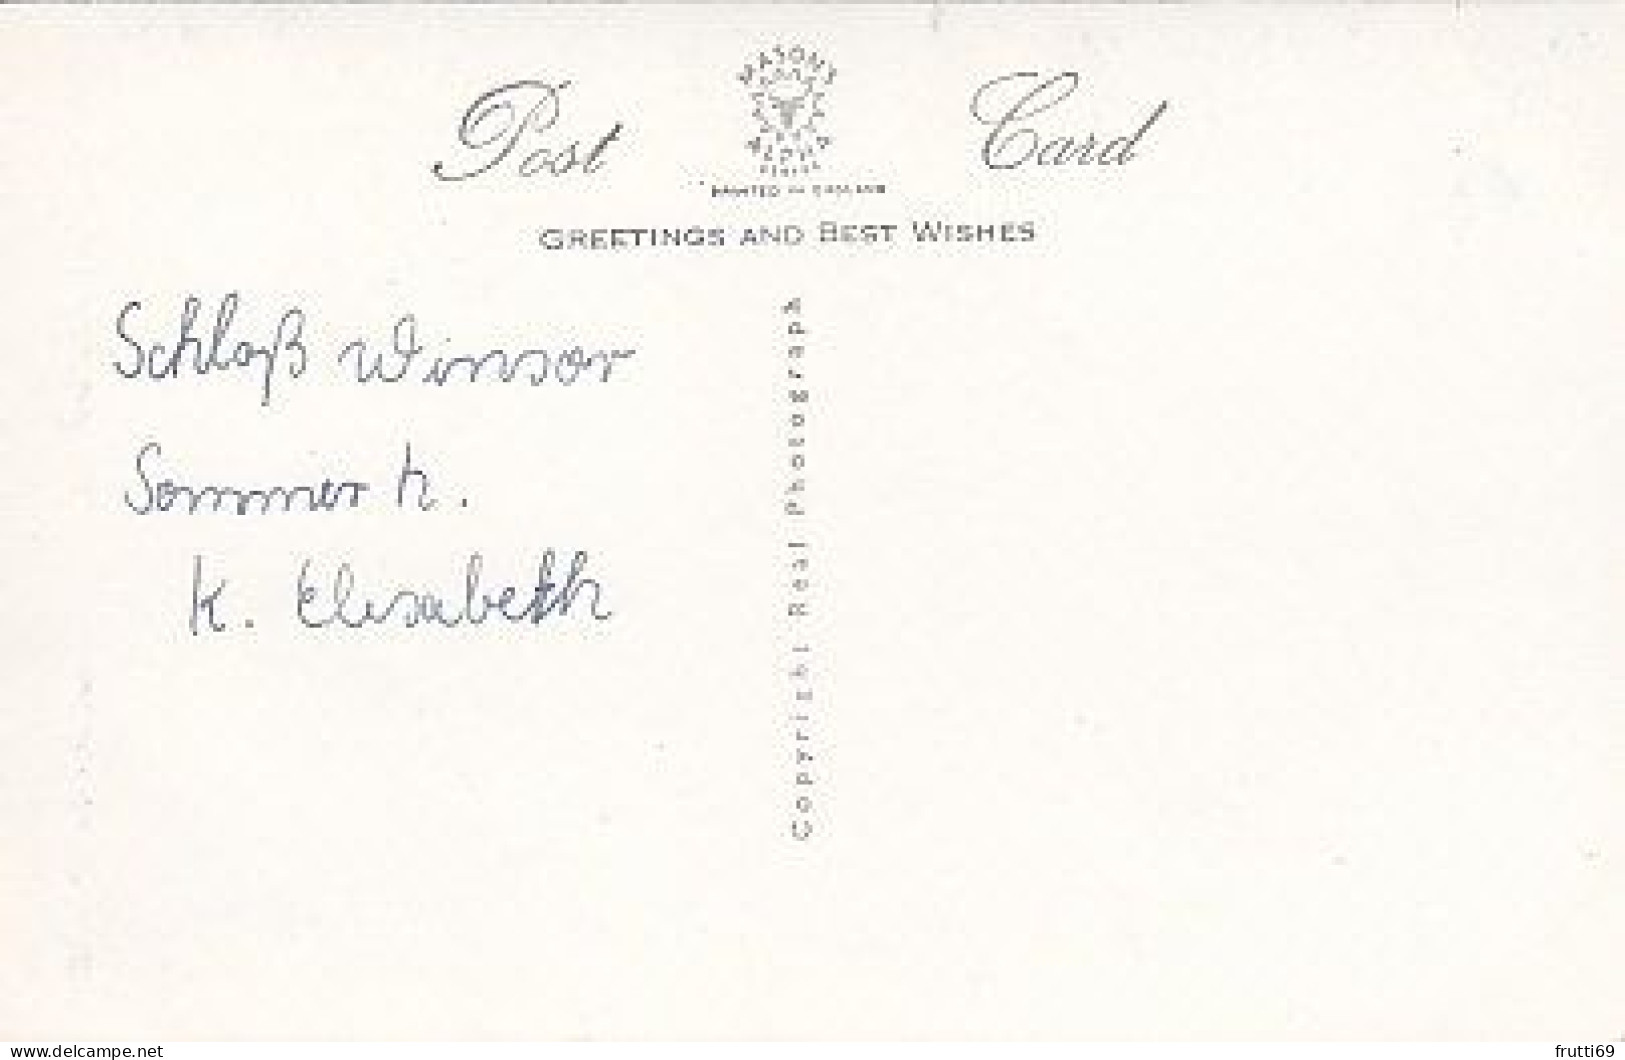 Post Card
MASON'S
ALPHA
SERIES
PRINTED IN ENGLAND
GREETINGS AND BEST WISHES
Schloß Winsor
Sommer h.
K. Elisabeth
Copyright Real Photograph
www.delcampe.net
frutti69